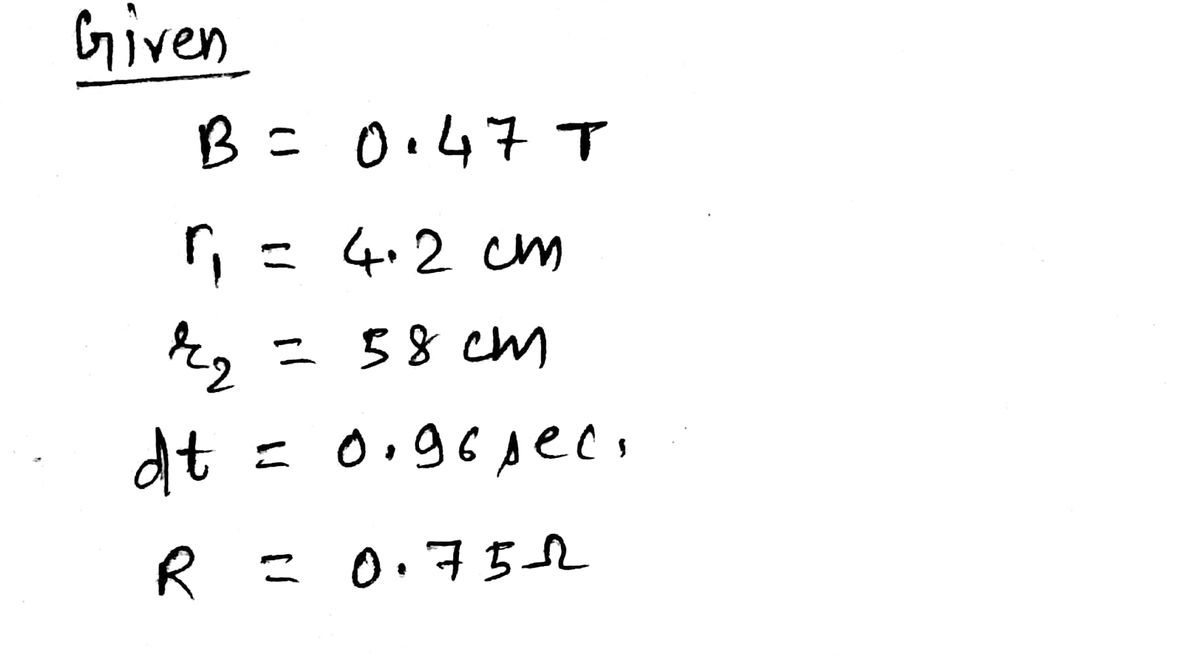 Given
B = 0.47 T
r₁ = 4.2 cm
r₂ = 58 cm
dt = 0.96 sec.
R = 0.75Ω